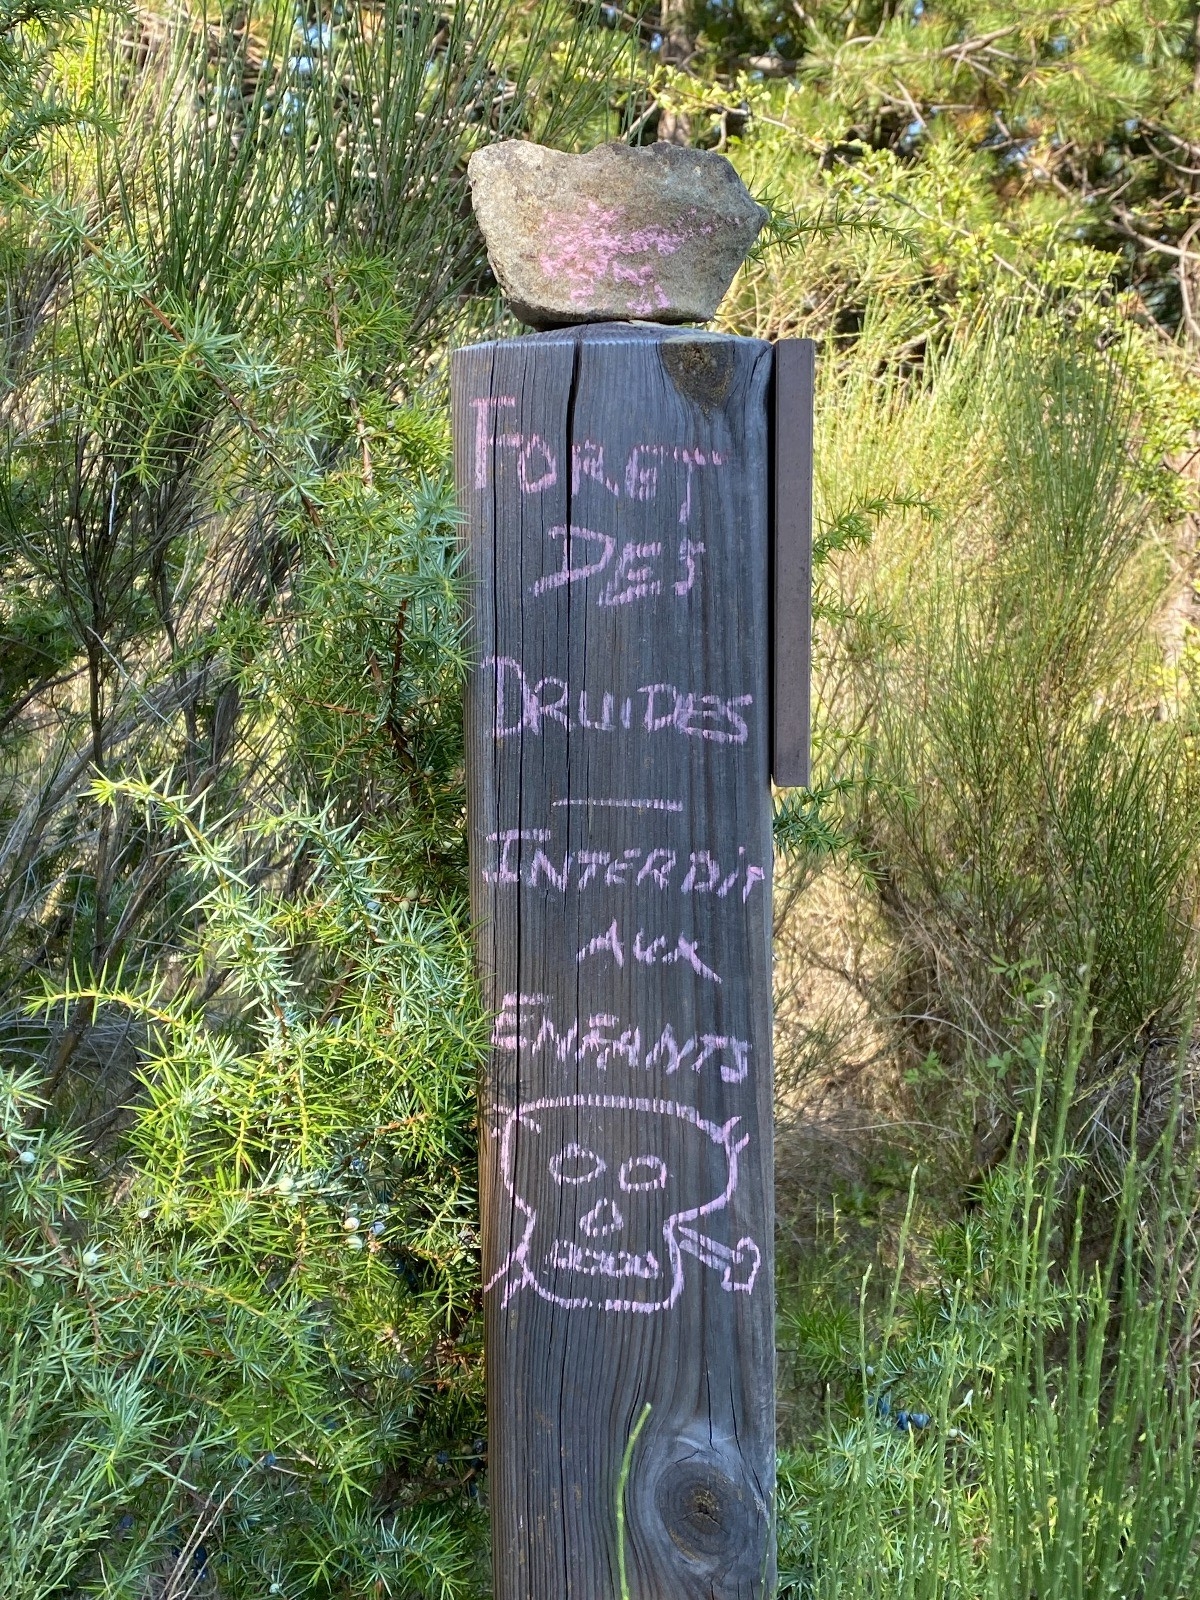 FORET
DES
DRUIDES
—
INTERDIT
AUX
ENFANTS